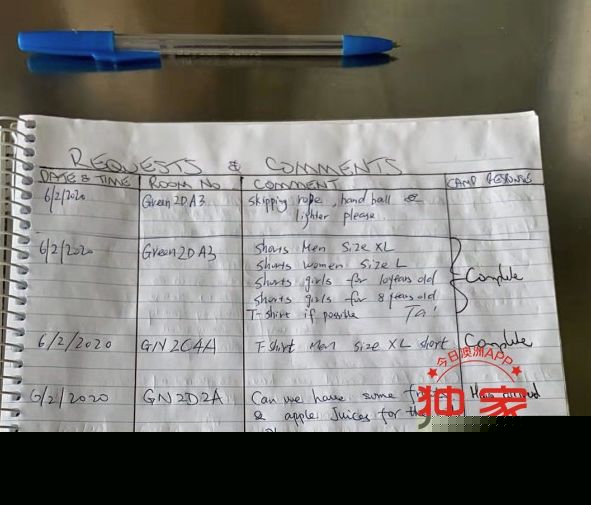 REQUESTS & COMMENTS
DATE & TIME ROOM NO COMMENT CAMP RESPONSE
6/2/2020 Green2DA3 skipping rope, hand ball &
lighter please.
6/2/2020 Green2DA3 Shorts Men Size XL
Shorts women Size L
Shorts girls for 10 years old Complete
Shorts girls for 8 years old
T-shirt if possible Ta!
6/2/2020 GN2C4A T-shirt Men size XL short Complete
6/2/2020 GN2D2A Can we have some
& apple Juices for the
今日澳洲APP
独家